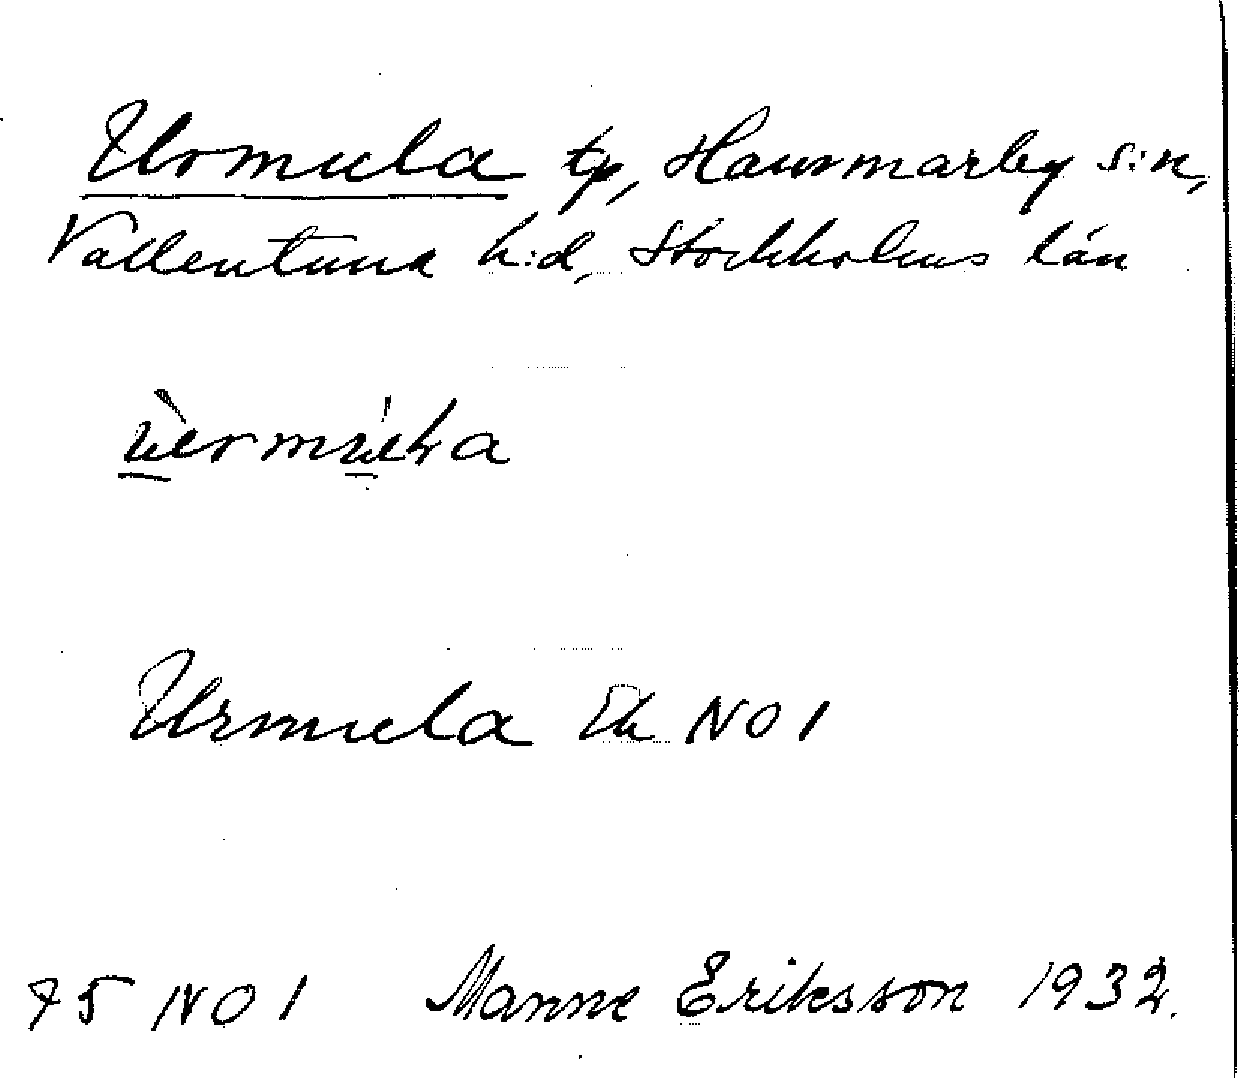 Urmula tp, Hammarby s:n,
Vallentuna h:d, Stockholms län
Urmula Ek NO 1
75 NO 1 Manne Eriksson 1932.